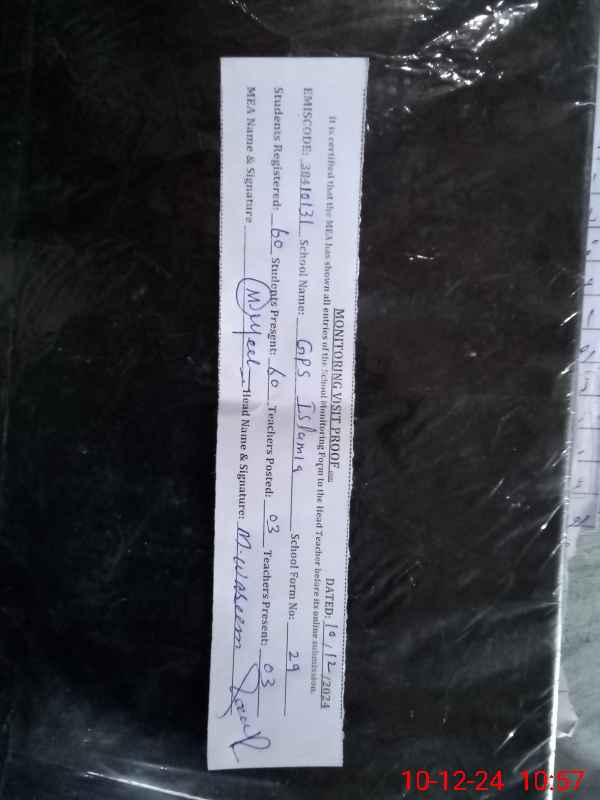 MONITORING VISIT PROOF DATED: 10/12/2024
It is certified that the MEA has shown all entries of the School Monitoring Form to the Head Teacher before its online submission.
EMISCODE: 38410131 School Name: GPS Islamia School Form No: 29
Students Registered: 60 Students Present: 60 Teachers Posted: 03 Teachers Present: 03
MEA Name & Signature Head Name & Signature: M. Waseem
10-12-24 10:57